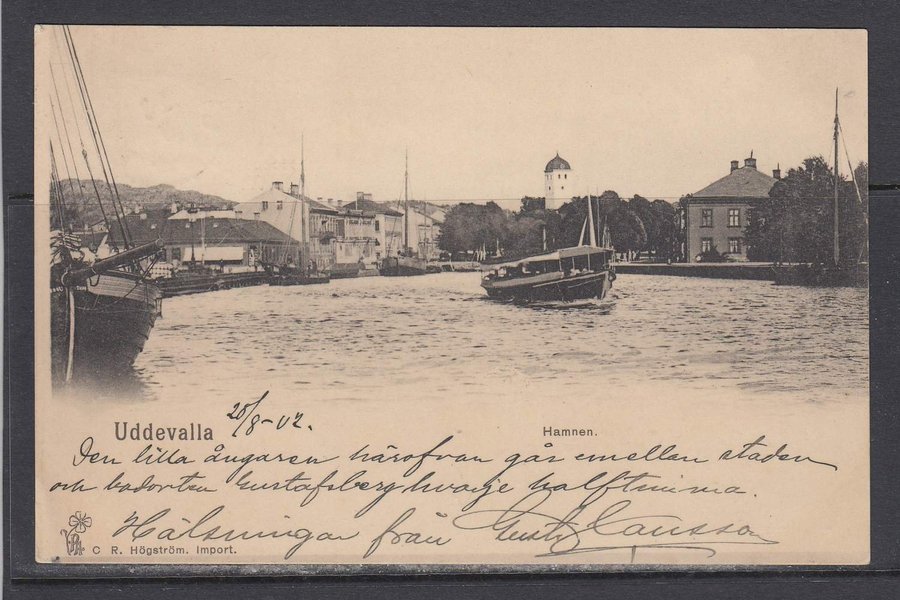 Uddevalla 20/8-02.
Hamnen.
Den lilla ångaren härofvan går emellan staden
och badorten Gustafsberg hvarje halftimma.
Hälsningar från Gust Claesson
C. R. Högström. Import.